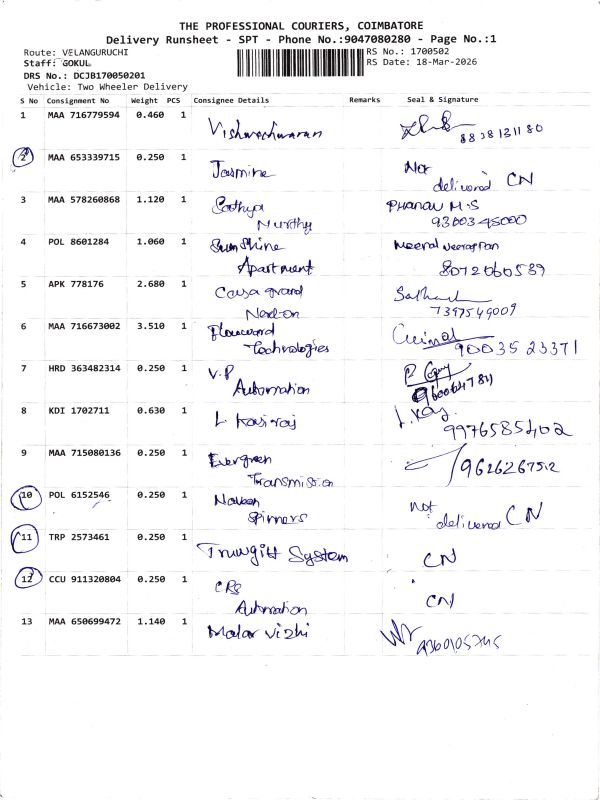 THE PROFESSIONAL COURIERS, COIMBATORE
Delivery Runsheet - SPT - Phone No.:9047080280 - Page No.:1
Route: VELANGURUCHI RS No.: 1700502
Staff: GOKUL RS Date: 18-Mar-2026
DRS No.: DCJB170050201
Vehicle: Two Wheeler Delivery
S No Consignment No Weight PCS Consignee Details Remarks Seal & Signature
1 MAA 716779594 0.460 1 Vishweshwaran
8838131180
2 MAA 653339715 0.250 1 Jasmine Not
delivered CN
3 MAA 578260868 1.120 1 Sathya PHANAN M.S
Murthy 9300345000
4 POL 8601284 1.060 1 Sunshine Meena Veerappan
Apartment 8072060589
5 APK 778176 2.680 1 Casa grand
7397549009
6 MAA 716673002 3.510 1
Technologies 9003523371
7 HRD 363482314 0.250 1 V.P
Automation
8 KDI 1702711 0.630 1 L Kasiraj L. Kay
9976585402
9 MAA 715080136 0.250 1 Evergreen
Transmission 9626267512
10 POL 6152546 0.250 1 Naveen not
Spinners delivered CN
11 TRP 2573461 0.250 1 System CN
12 CCU 911320804 0.250 1 CRS CN
Automation
13 MAA 650699472 1.140 1 Malar vizhi